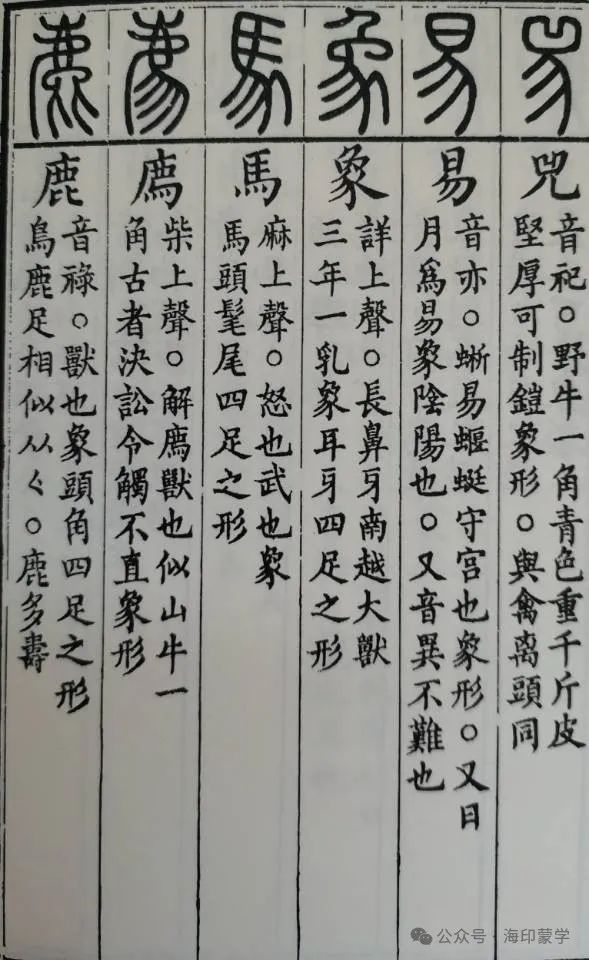 兕易象馬廌鹿
兕
音祀○野牛一角青色重千斤皮
堅厚可制鎧象形○與禽离頭同
易
音亦○蜥易蝘蜓守宮也象形○又日
月爲易象陰陽也○又音異不難也
象
詳上聲○長鼻牙南越大獸
三年一乳象耳牙四足之形
馬
麻上聲○怒也武也象
馬頭髦尾四足之形
廌
柴上聲○解廌獸也似山牛一
角古者決訟令觸不直象形
鹿
音祿○獸也象頭角四足之形
鳥鹿足相似从匕○鹿多壽
公众号·海印蒙学